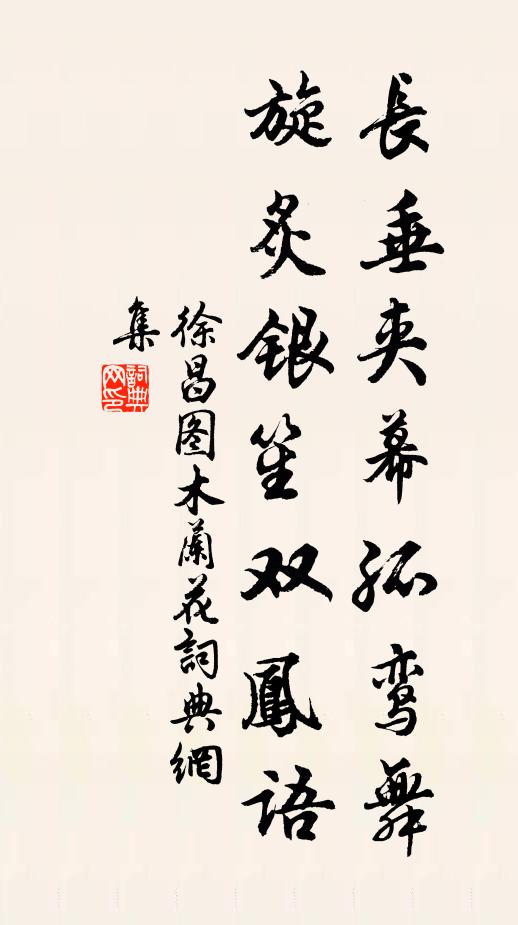 長垂夾幕孤鸾舞
旋炙銀笙双鳳語
徐昌图木蘭花詞典網
集
詞典
网印